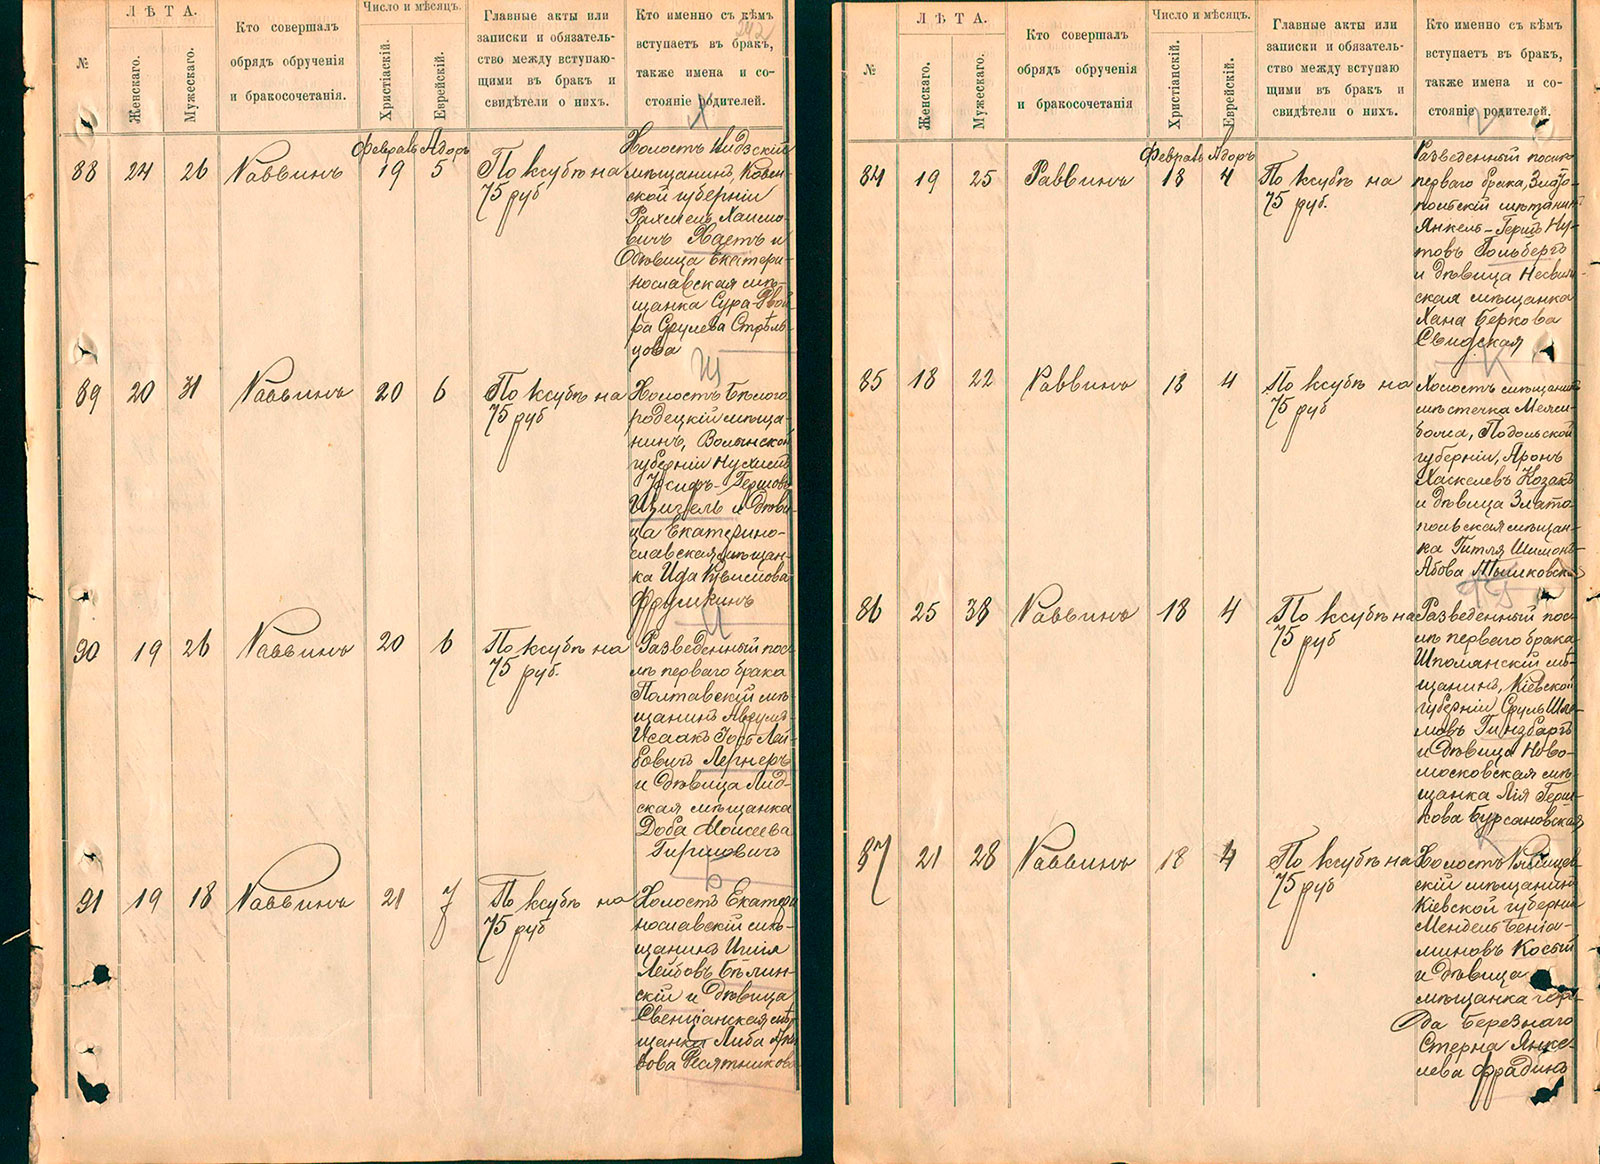 №
ЛѢТА.
Женскаго.
Мужескаго.
Кто совершалъ
обрядъ обрученія
и бракосочетанія.
Число и мѣсяцъ.
Христіаскій.
Еврейскій.
Главные акты или
записки и обязатель-
ство между вступаю-
щими въ бракъ и
свидѣтели о нихъ.
Кто именно съ кѣмъ
вступаетъ въ бракъ,
также имена и со-
стояніе родителей.
Февраль Адоръ
88 24 26 Раввинъ 19 5
По ксубѣ на
75 руб
Холостъ Видзскій
мѣщанинъ, Ковен-
ской губерніи
Рахмель Хаимо-
вичъ Хаетъ и
дѣвица Екатери-
нославская мѣ-
щанка Сура-Двой
ра Срулева Стрѣль-
цова
89 20 31 Раввинъ 20 6
По ксубѣ на
75 руб
Холостъ Бѣлого
родецкій мѣща-
нинъ, Волынской
губерніи Нухимъ
Іосифъ-Гершовъ
Цизель и дѣви-
ца Екатерино-
славская мѣщан-
ка Ида
Фрумкинъ
90 19 26 Раввинъ 20 6
По ксубѣ на
75 руб.
Разведенный пос-
лѣ перваго брака
Полтавскій мѣ-
щанинъ
Исаакъ Лей-
бовичъ Лернеръ
и дѣвица Лид-
ская мѣщанка
Доба Моисеева
Гиршовичъ
91 19 18 Раввинъ 21 7
По ксубѣ на
75 руб
Холостъ Екатери
нославскій мѣ-
щанинъ
Лейбовъ Бѣлин-
скій и дѣвица
Свенцянская мѣ-
щанка Либа
вова Десятникова
№
ЛѢТА.
Женскаго.
Мужескаго.
Кто совершалъ
обрядъ обрученія
и бракосочетанія
Число и мѣсяцъ.
Христіанскій.
Еврейскій.
Главные акты или
записки и обязатель-
ство между вступаю
щими въ бракъ и
свидѣтели о нихъ.
Кто именно съ кѣмъ
вступаетъ въ бракъ,
также имена и со-
стояніе родителей.
Февраль Адоръ
84 19 25 Раввинъ 18 4
По ксубѣ на
75 руб.
Разведенный послѣ
перваго брака, Злато
польскій мѣщанинъ
Янкель-Гершъ Ну-
товъ Гольбергъ
и дѣвица Несвиж-
ская мѣщанка
Хана Беркова
Свидская
85 18 22 Раввинъ 18 4
По ксубѣ на
75 руб
Холостъ мѣщанинъ
мѣстечка Межи-
божа, Подольской
губерніи, Аронъ
Хаскелевъ Козакъ
и дѣвица Злато-
польская мѣщан-
ка Гитля Шимонъ-
Абова Мышковская
86 25 38 Раввинъ 18 4
По ксубѣ на
75 руб
Разведенный пос-
лѣ перваго брака
Шполянскій мѣ-
щанинъ, Кіевской
губерніи Сруль Шле-
мовъ Гинзбаргъ
и дѣвица Ново-
московская мѣ-
щанка Лія Герш-
кова Бурсановская
87 21 28 Раввинъ 18 4
По ксубѣ на
75 руб
Холостъ
скій мѣщанинъ
Кіевской губерніи
Мендель Беніа-
миновъ
и дѣвица
мѣщанка горо-
да Березнаго
Стерна Янке-
лева Фрадинъ